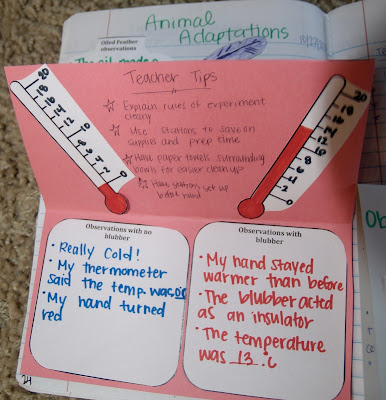 Animal
Adaptations
Oiled Feather
observations
Teacher Tips
☆ Explain rules of experiment
clearly
☆ Use stations to save on
supplies and prep time
☆ Have paper towels surrounding
bowls for easier clean up
☆ Have stations set up
before hand
20
18
16
14
12
10
8
6
4
2
0
Observations with no
blubber
• Really Cold!
• My thermometer
said the temp. was 0°c
• My hand turned
red
Observations with
blubber
• My hand stayed
warmer than before
• The blubber acted
as an insulator
• The temperature
was 13 °c
24